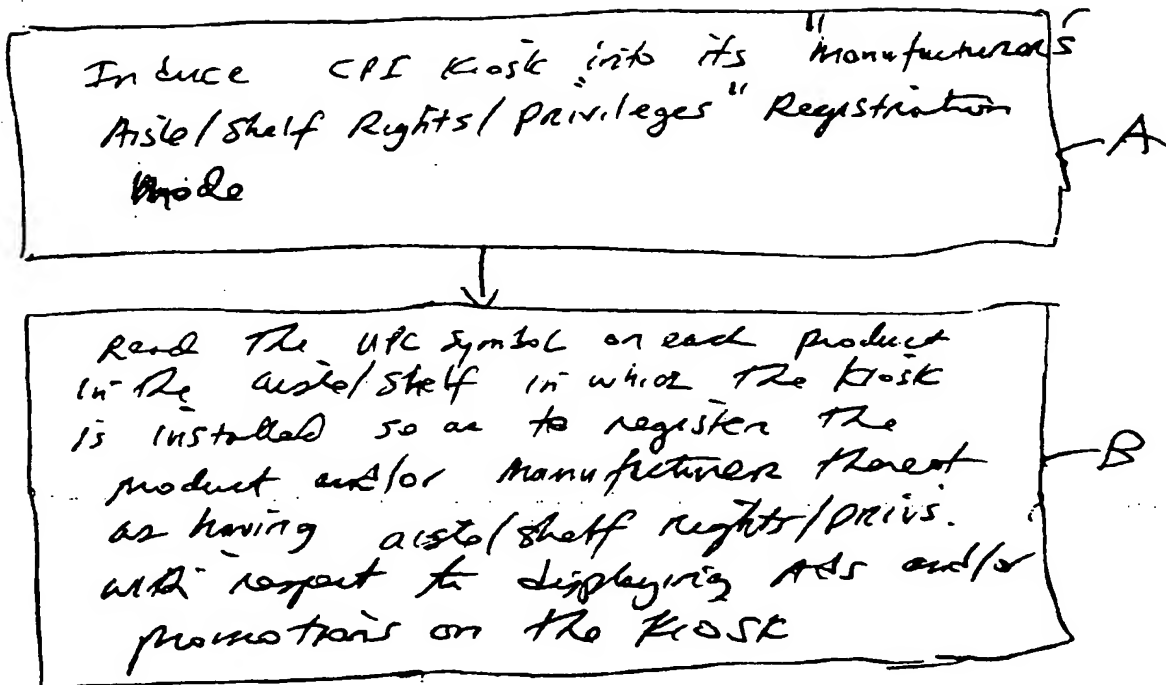 Induce CPI Kiosk into its "Manufacturer's
Aisle/Shelf Rights/Privileges" Registration
Mode
A
Read the UPC symbol on each product
in the aisle/shelf in which the kiosk
is installed so as to register the
product and/or manufacturer thereof
as having aisle/shelf rights/privs.
with respect to displaying Ads and/or
promotions on the Kiosk
B